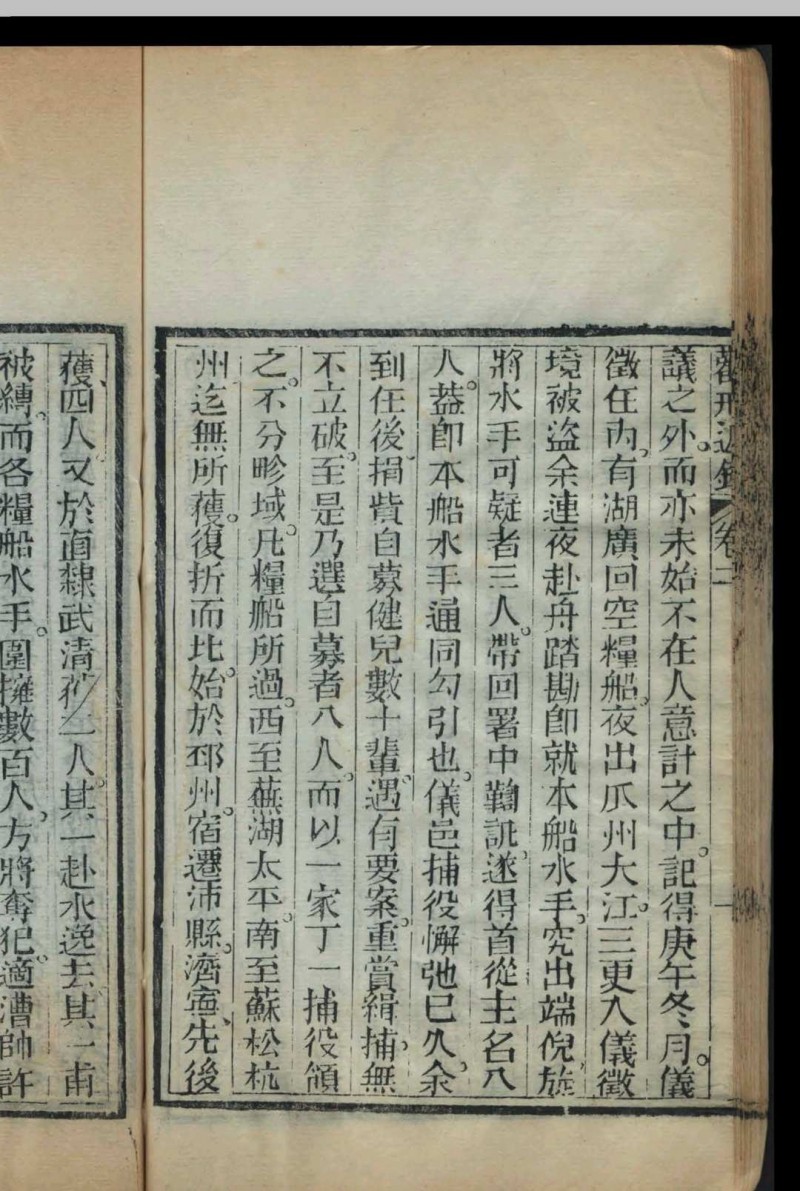 議之外。而亦未始不在人意計之中。記得庚午冬月。儀
徵任內。有湖廣回空糧船。夜出瓜州大江。三更入儀徵
境被盜余連夜赴舟踏勘卽就本船水手。究出端倪旋
將水手可疑者三人。帶回署中鞫訊。遂得首從主名八
人。蓋卽本船水手通同勾引也。儀邑捕役懈弛已久。余
到任後。捐貲自募健兒數十輩。遇有要案。重賞緝捕。無
不立破。至是乃選自募者八人。而以一家丁一捕役領
之。不分畛域。凡糧船所過。西至蕪湖太平。南至蘇松杭
州。迄無所獲。復折而北。始於邳州。宿遷沛縣。濟寧、先後
獲四人又於直隸武清 二人。其一赴水逸去。其一甫
被縛。而各糧船水手。圍擁數百人。方將奪犯。適漕帥許
卷二